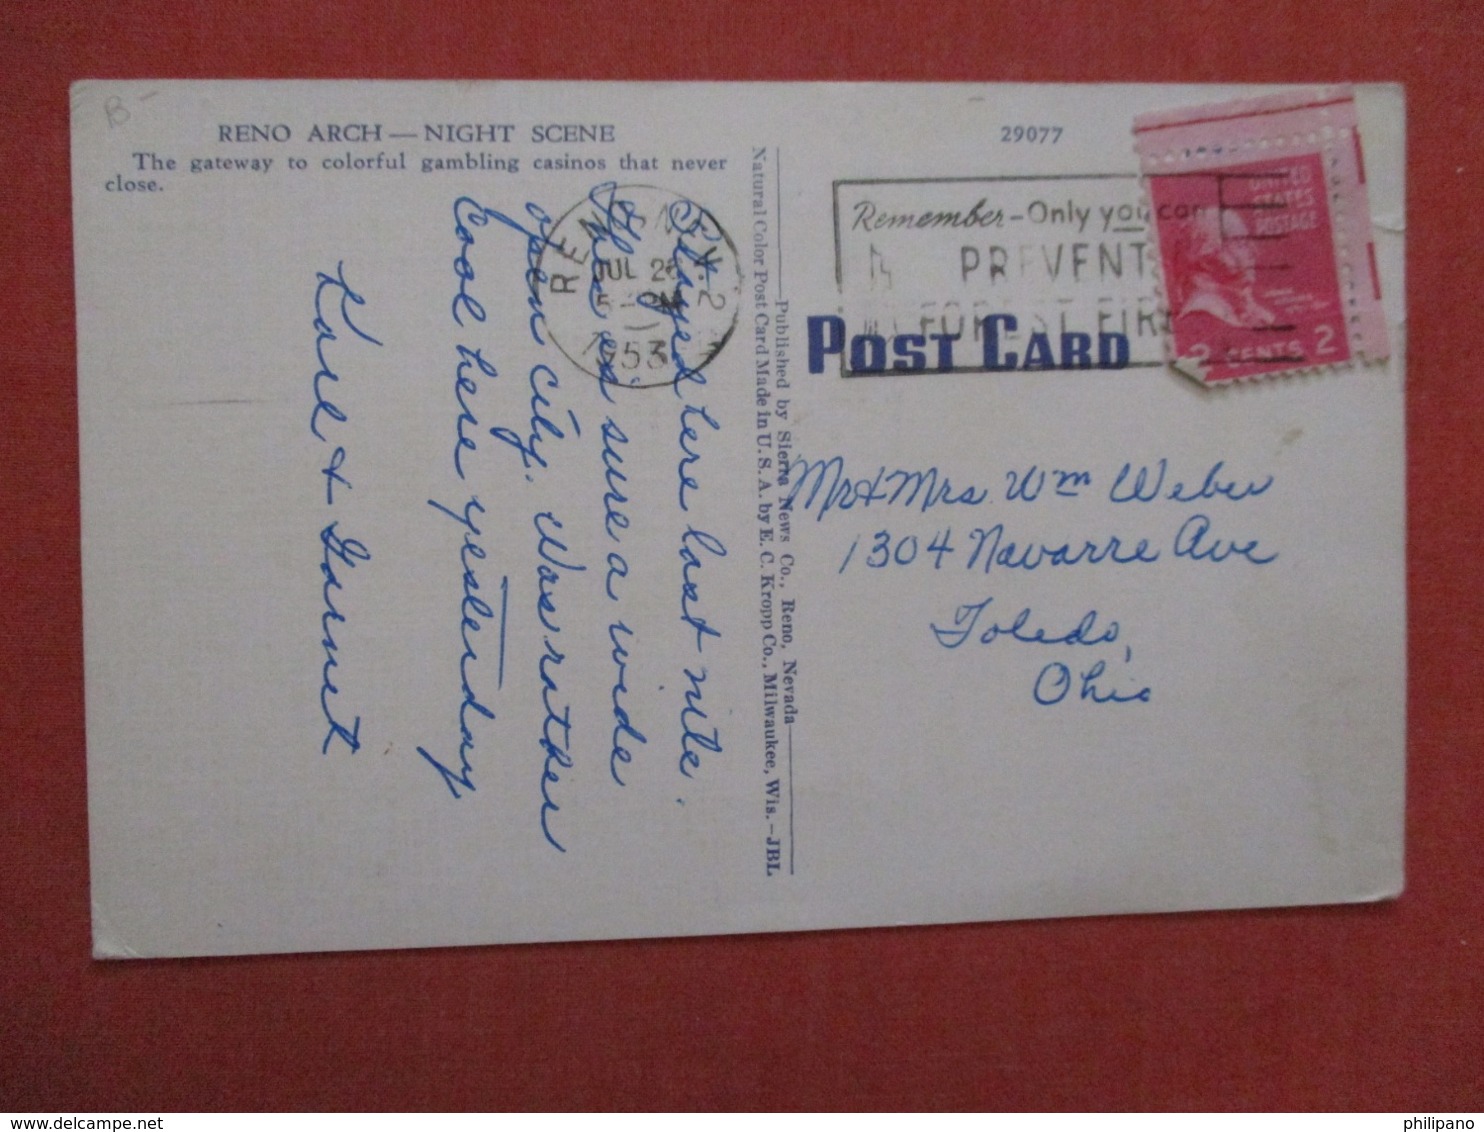 B-
RENO ARCH — NIGHT SCENE
The gateway to colorful gambling casinos that never
close.
Stayed here last nite.
This is sure a wide
open city. Was rather
Cool here yesterday
Karl & Garnet
RENO, NEV. 2
JUL 26
1953
Published by Sierra News Co., Reno, Nevada
Natural Color Post Card Made in U. S. A. by E. C. Kropp Co., Milwaukee, Wis.—JBL
29077
Remember - Only you can
PREVENT
FOREST FIRE
POST CARD
UNITED
STATES
POSTAGE
2 CENTS 2
Mr & Mrs. Wm Weber
1304 Navarre Ave
Toledo,
Ohio
philipano